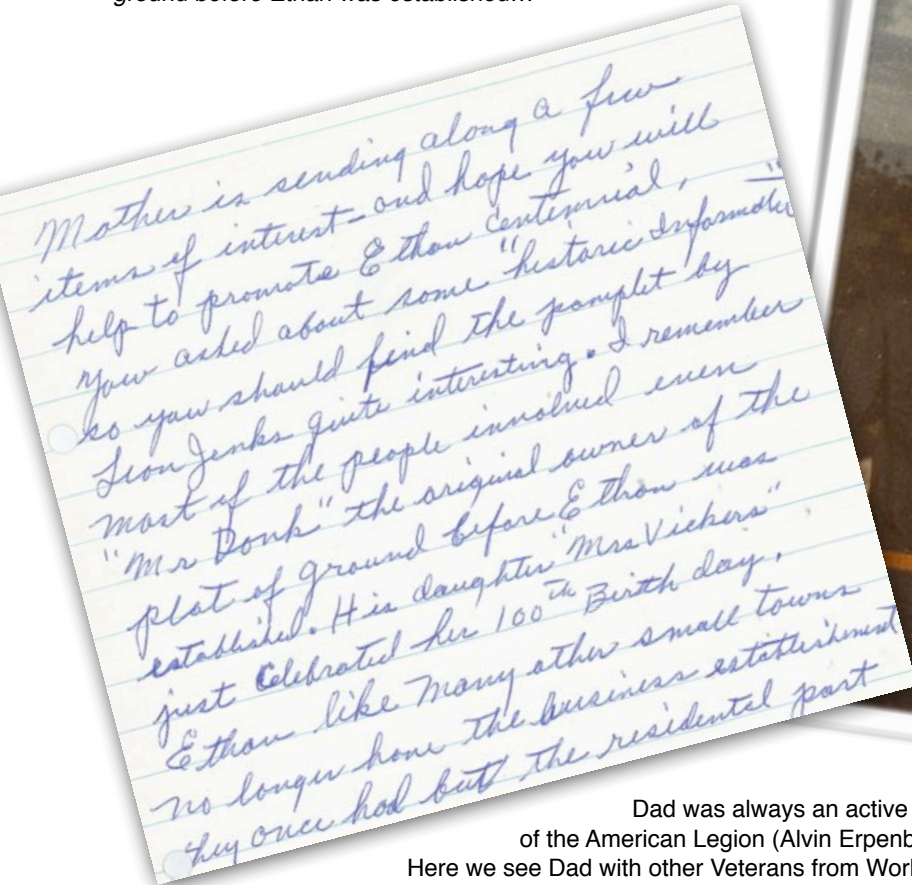 ground before Ethan was established...
Mother is sending along a few
items of interest - and hope you will
help to promote Ethan Centinnial,
you asked about some "historic Informatio
so you should find the pamplet by
Leon Jenks quite interesting. I remember
most of the people involved even
"Mr Donk" the original owner of the
plot of ground before Ethan was
established. His daughter "Mrs Vickers"
just Celebrated her 100th Birth day,
Ethan like many other small towns
no longer have the business establishment
they once had but the residental part
Dad was always an active
of the American Legion (Alvin Erpenb
Here we see Dad with other Veterans from Worl